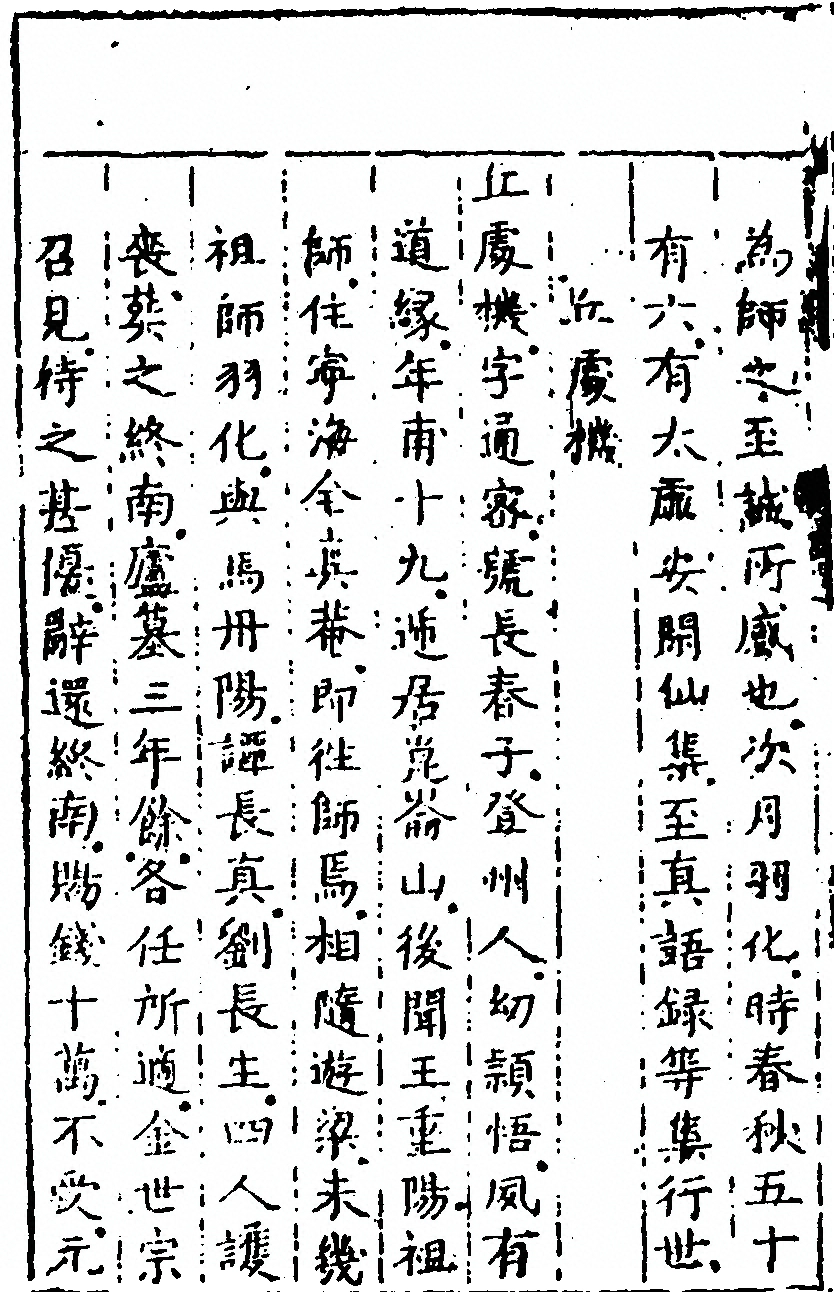 為師步至誠所感也次月羽化時春秋五十
有六有太虛安閑仙集至真語録等集行世
丘處機
丘處機字通密號長春子登州人幼頴悟夙有
道緣年甫十九遁居崑崙山後聞王重陽祖
師住寧海全真菴即往師焉相隨遊梁未幾
祖師羽化與馬丹陽譚長真劉長生四人護
喪葬之終南廬墓三年餘各任所適金世宗
召見待之甚優辭還終南賜錢十萬不受元